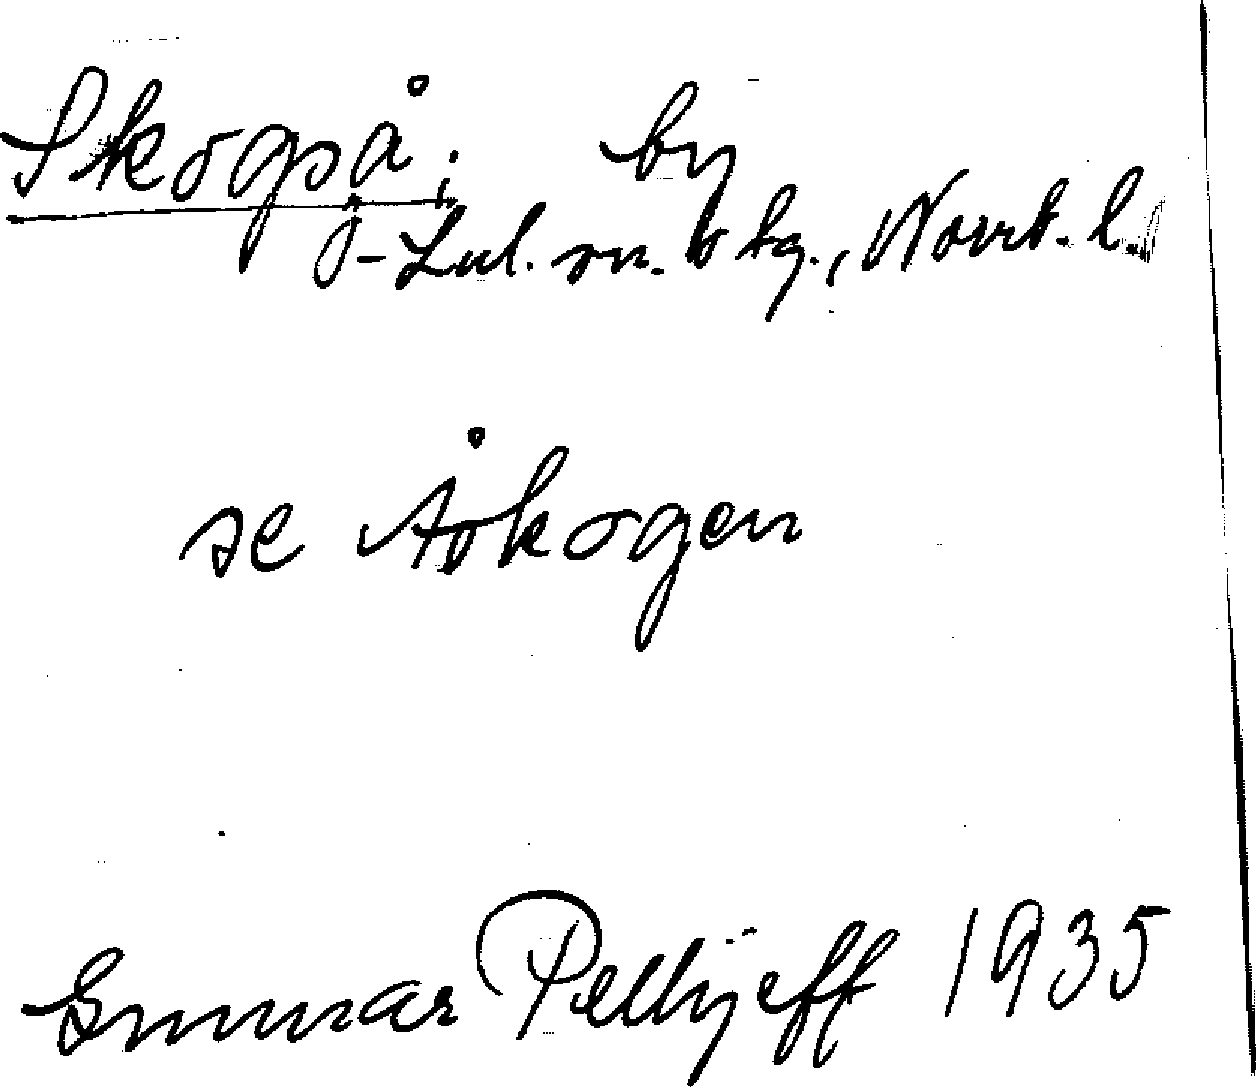 Skogså; by
J-Lul. sn. o tg., Norrb. l.
se Åskogen
Gunnar Pellijeff 1935